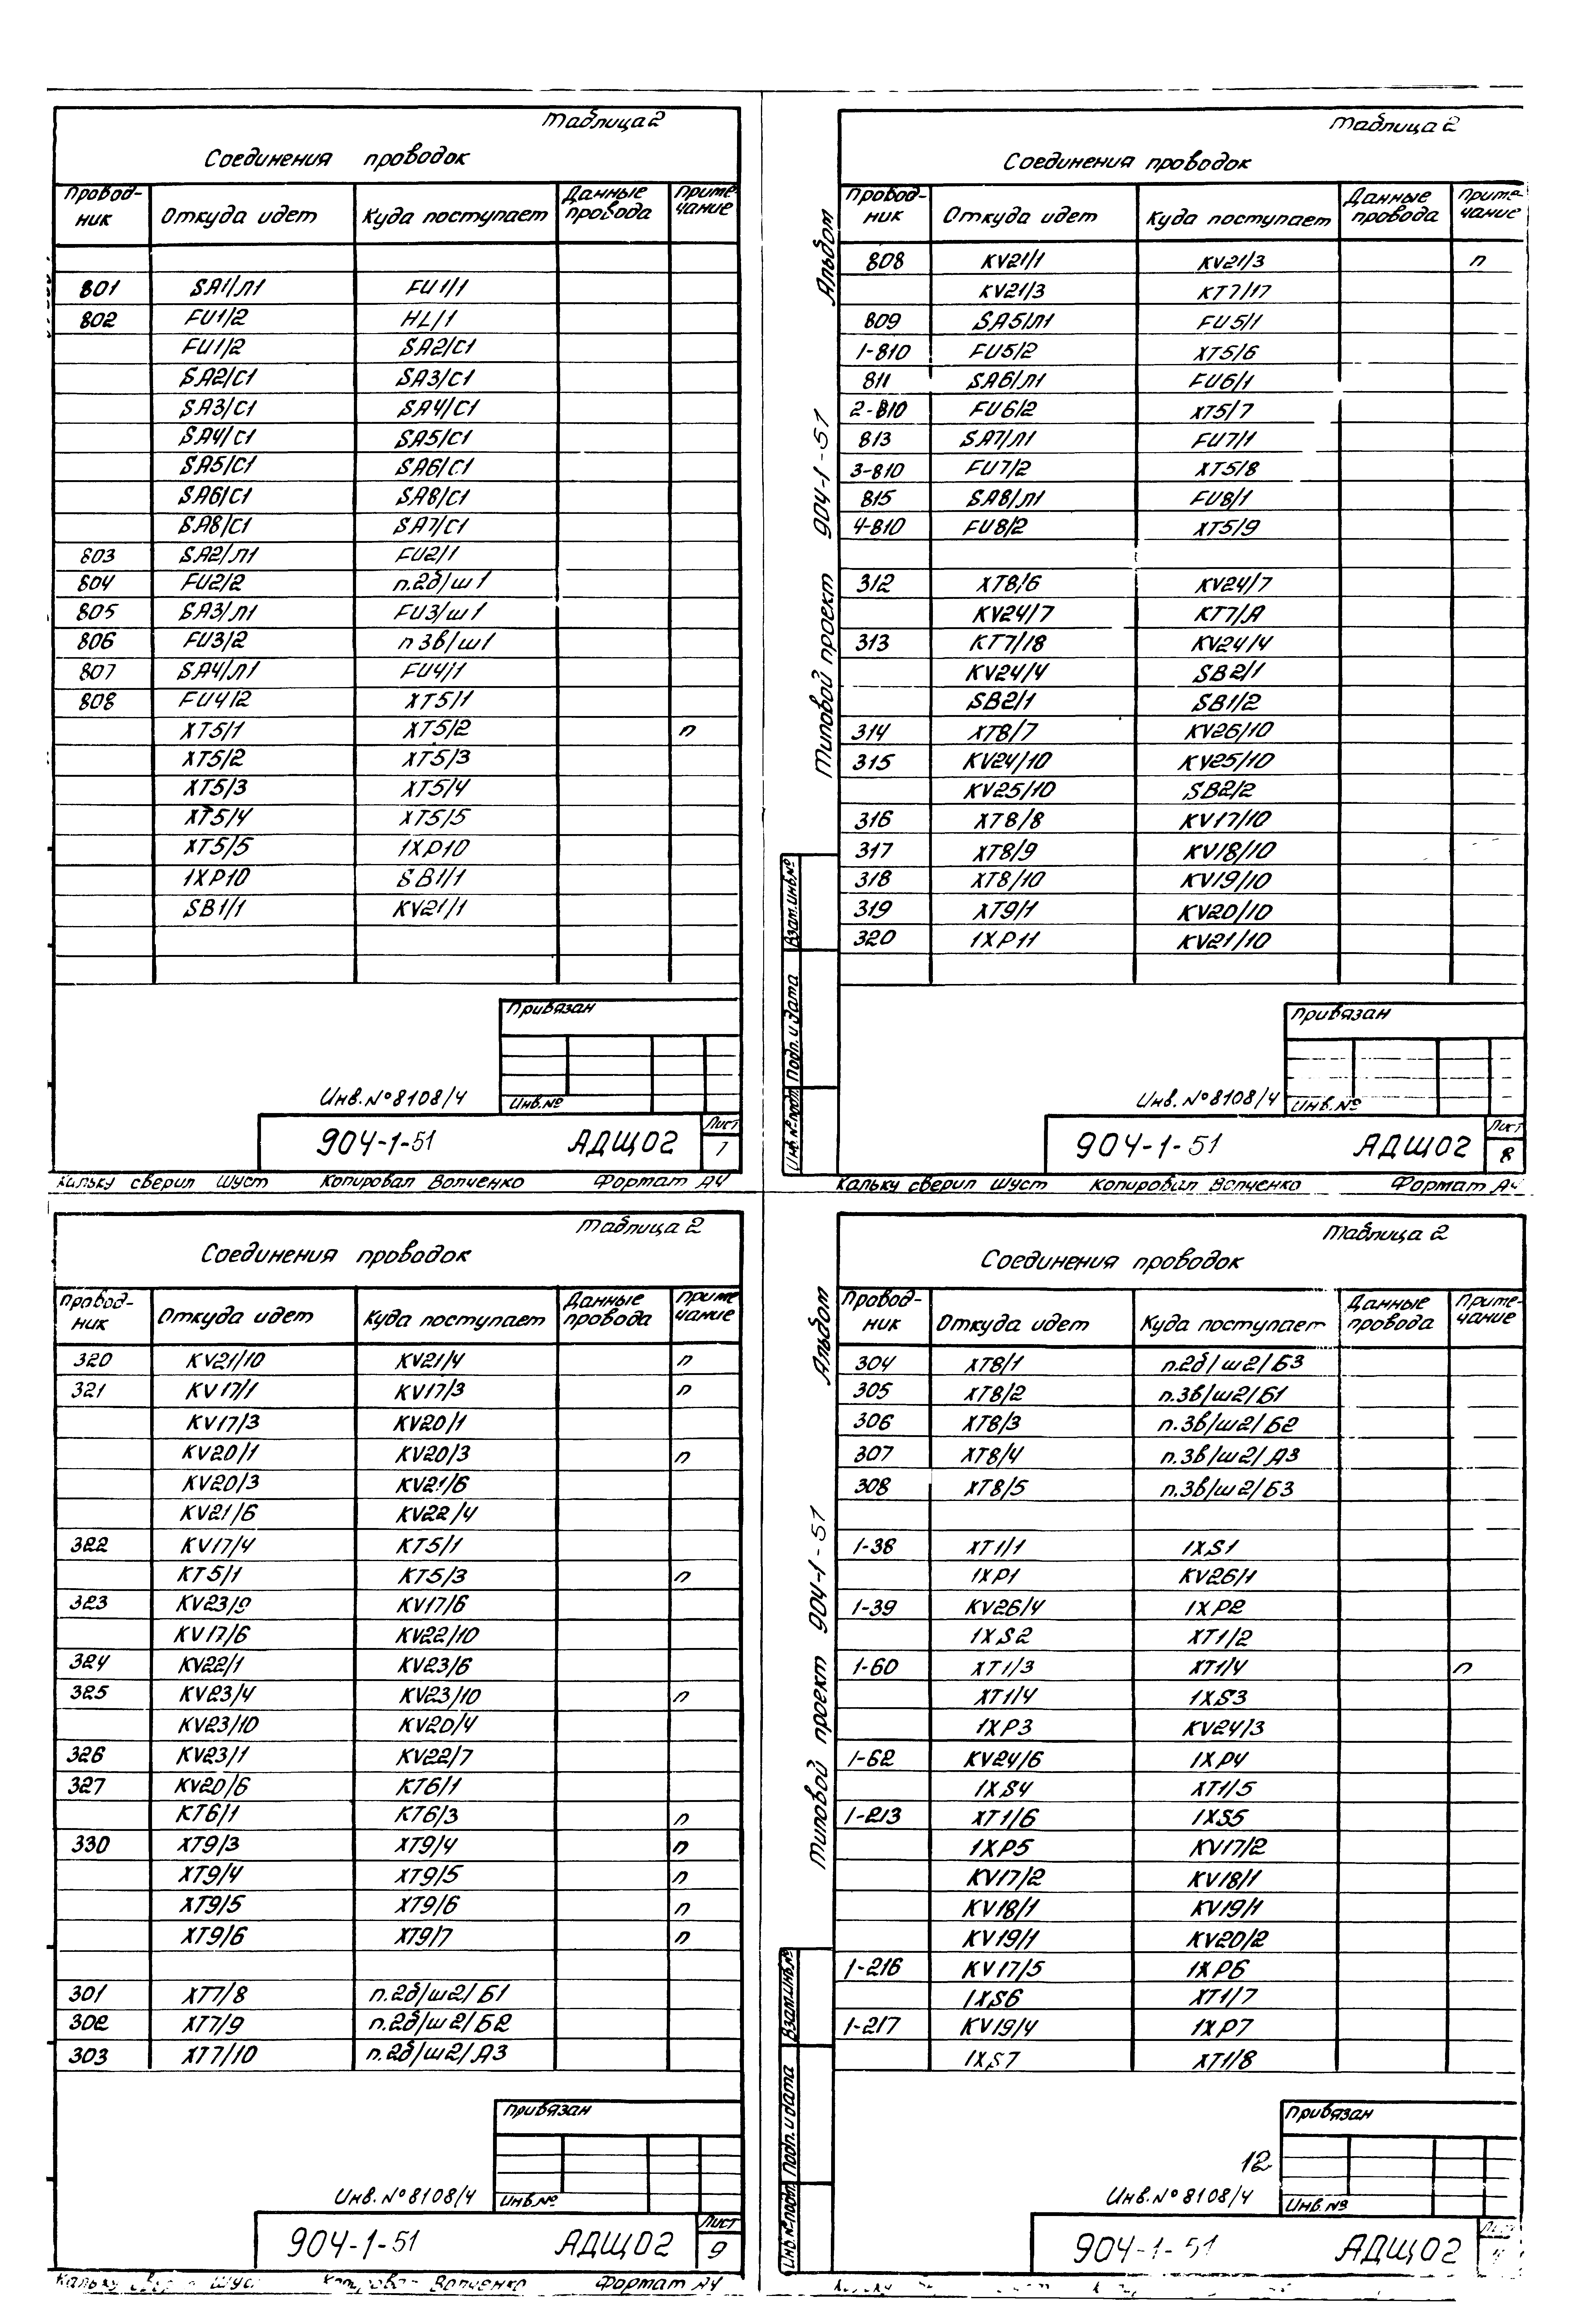 Таблица 2
Соединения проводок
Провод-ник Откуда идет Куда поступает Данные провода Приме-чание
801 SA1/Л1 FU1/1
802 FU1/2 HL/1
FU1/2 SA2/C1
SA2/C1 SA3/C1
SA3/C1 SA4/C1
SA4/C1 SA5/C1
SA5/C1 SA6/C1
SA6/C1 SA8/C1
SA8/C1 SA7/C1
803 SA2/Л1 FU2/1
804 FU2/2 п.2б/ш1
805 SA3/Л1 FU3/ш1
806 FU3/2 п3в/ш1
807 SA4/Л1 FU4/1
808 FU4/2 XT5/1
XT5/1 XT5/2 п
XT5/2 XT5/3
XT5/3 XT5/4
XT5/4 XT5/5
XT5/5 1XP10
1XP10 SB1/1
SB1/1 KV21/1
Привязан
Инв.№8108/4 Инв.№
904-1-51 АДЩ02 Лист 7
Кальку сверил Шуст Копировал Вопченко Формат А4
Таблица 2
Соединения проводок
Провод-ник Откуда идет Куда поступает Данные провода Приме-чание
808 KV21/1 KV21/3 п
KV21/3 KT7/17
809 SA5/Л1 FU5/1
1-810 FU5/2 XT5/6
811 SA6/Л1 FU6/1
2-810 FU6/2 XT5/7
813 SA7/Л1 FU7/1
3-810 FU7/2 XT5/8
815 SA8/Л1 FU8/1
4-810 FU8/2 XT5/9
312 XT8/6 KV24/7
KV24/7 KT7/A
313 KT7/18 KV24/4
KV24/4 SB2/1
SB2/1 SB1/2
314 XT8/7 KV26/10
315 KV24/10 KV25/10
KV25/10 SB2/2
316 XT8/8 KV17/10
317 XT8/9 KV18/10
318 XT8/10 KV19/10
319 XT9/1 KV20/10
320 1XP11 KV21/10
Типовой проект 904-1-51 Альбом
Взам.инв.№
Подп. и дата
Инв.№подл.
Привязан
Инв.№8108/4 Инв.№
904-1-51 АДЩ02 Лист 8
Кальку сверил Шуст Копировал Вопченко Формат А4
Таблица 2
Соединения проводок
Провод-ник Откуда идет Куда поступает Данные провода Приме чание
320 KV21/10 KV21/4 п
321 KV17/1 KV17/3 п
KV17/3 KV20/1
KV20/1 KV20/3 п
KV20/3 KV21/6
KV21/6 KV22/4
322 KV17/4 KT5/1
KT5/1 KT5/3 п
323 KV23/9 KV17/6
KV17/6 KV22/10
324 KV22/1 KV23/6
325 KV23/4 KV23/10 п
KV23/10 KV20/4
326 KV23/1 KV22/7
327 KV20/6 KT6/1
KT6/1 KT6/3 п
330 XT9/3 XT9/4 п
XT9/4 XT9/5 п
XT9/5 XT9/6 п
XT9/6 XT9/7 п
301 XT7/8 п.2б/ш2/Б1
302 XT7/9 п.2б/ш2/Б2
303 XT7/10 п.2б/ш2/А3
Привязан
Инв.№8108/4 Инв.№
904-1-51 АДЩ02 Лист 9
Кальку Шуст Копировал Вопченко Формат А4
Таблица 2
Соединения проводок
Провод-ник Откуда идет Куда поступает Данные провода Приме-чание
304 XT8/1 п.2б/ш2/Б3
305 XT8/2 п.3в/ш2/Б1
306 XT8/3 п.3в/ш2/Б2
307 XT8/4 п.3в/ш2/А3
308 XT8/5 п.3в/ш2/Б3
1-38 XT1/1 1XS1
1XP1 KV26/1
1-39 KV26/4 1XP2
1XS2 XT1/2
1-60 XT1/3 XT1/4 п
XT1/4 1XS3
1XP3 KV24/3
1-62 KV24/6 1XP4
1XS4 XT1/5
1-213 XT1/6 1XS5
1XP5 KV17/2
KV17/2 KV18/1
KV18/1 KV19/1
KV19/1 KV20/2
1-216 KV17/5 1XP6
1XS6 XT1/7
1-217 KV19/4 1XP7
1XS7 XT1/8
Типовой проект 904-1-51 Альбом
Взам.инв.№
Подп. и дата
Инв.№подл.
Привязан
12
Инв.№8108/4 Инв.№
904-1-51 АДЩ02